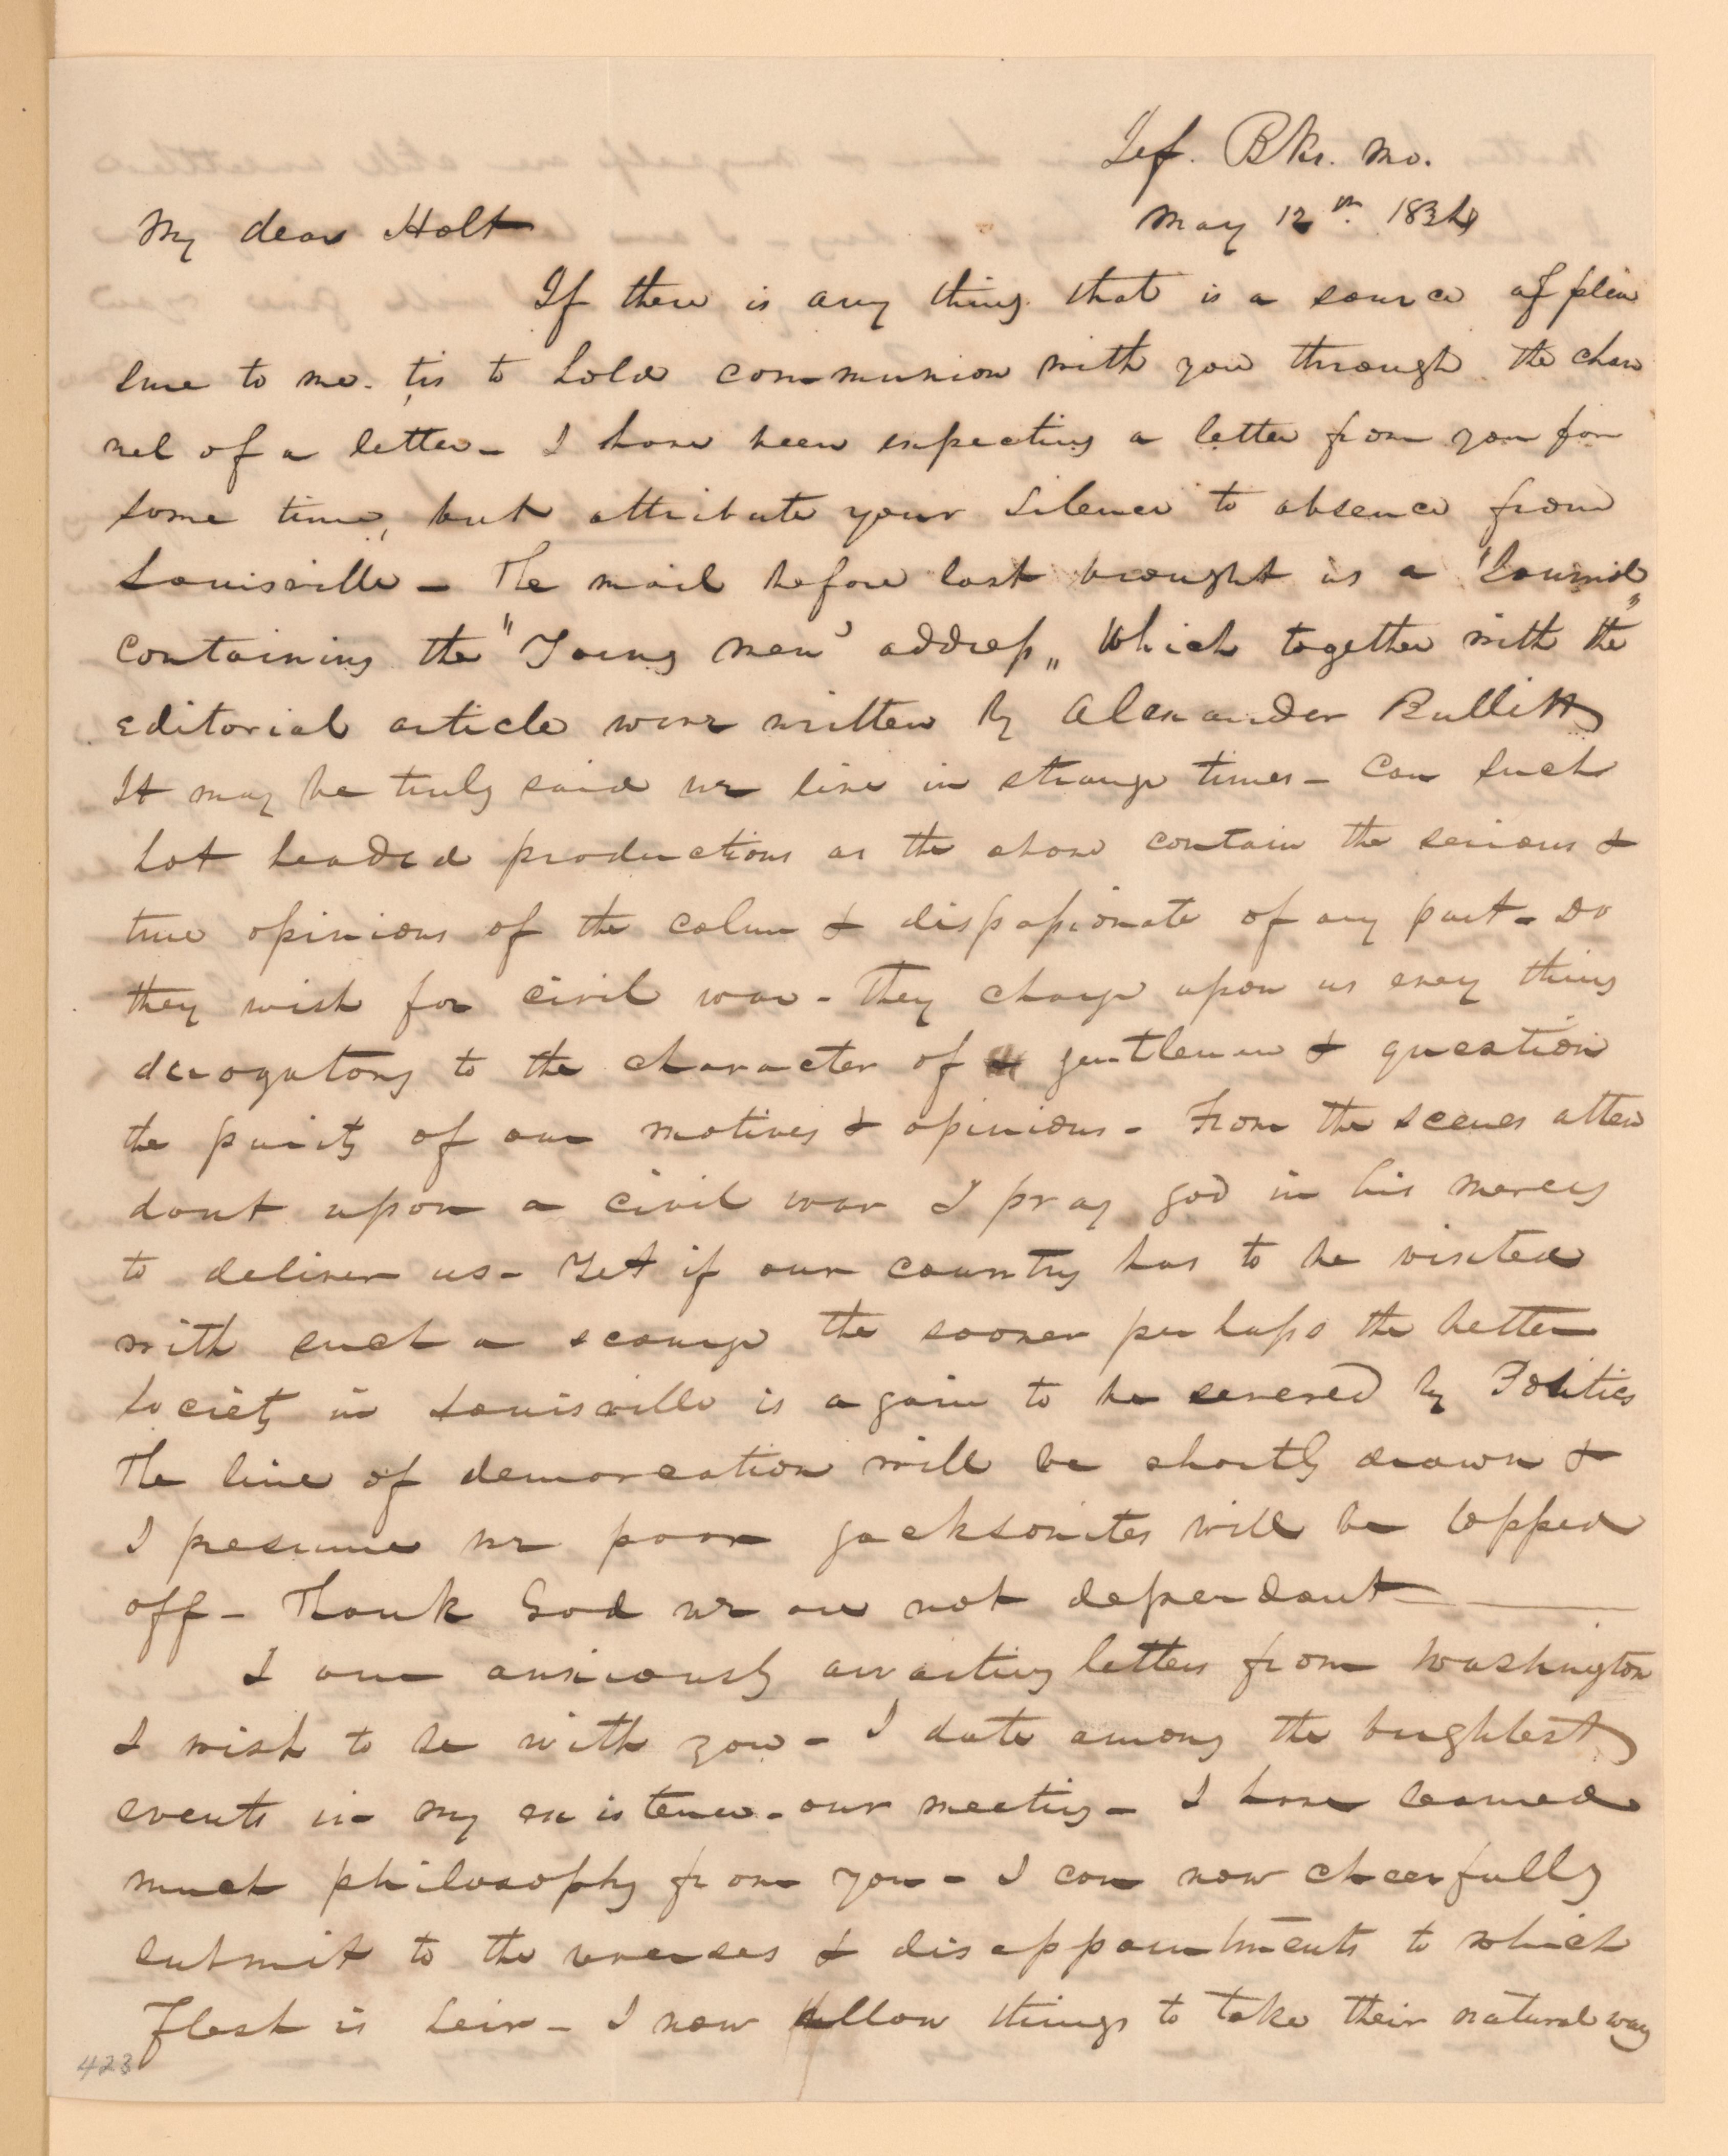 Jef. Bks. Mo.
May 12th. 1834
My dear Holt
If there is any thing that is a source of plea
sure to me. tis to hold communion with you through the chan
nel of a letter - I have been expecting a letter from you for
some time, but attribute your silence to absence from
Louisville - The mail before last brought us a "Journal"
containing the "Young men's address" which together with the
editorial article were written by Alexander Bullitt
It may be truly said we live in strange times - Can such
hot headed productions as the above contain the serious &
true opinions of the calm & dispassionate of any part - Do
they wish for civil war - They charge upon us every thing
derogatory to the character of gentlemen & question
the purity of our motives & opinions - From the scenes atten
dant upon a civil war I pray god in his mercy
to deliver us - Yet if our country has to be visited
with such a scourge the sooner perhaps the better
Society in Louisville is again to be severed by Politics
The line of demarcation will be shortly drawn &
I presume we poor Jacksonites will be lopped
off - Thank God we are not dependant
I am anxiously awaiting letters from Washington
I wish to be with you - I date among the brightest
events in my existence - our meeting - I have learned
much philosophy from you - I can now cheerfully
submit to the crosses & disappointments to which
Flesh is heir - I now allow things to take their natural way
423